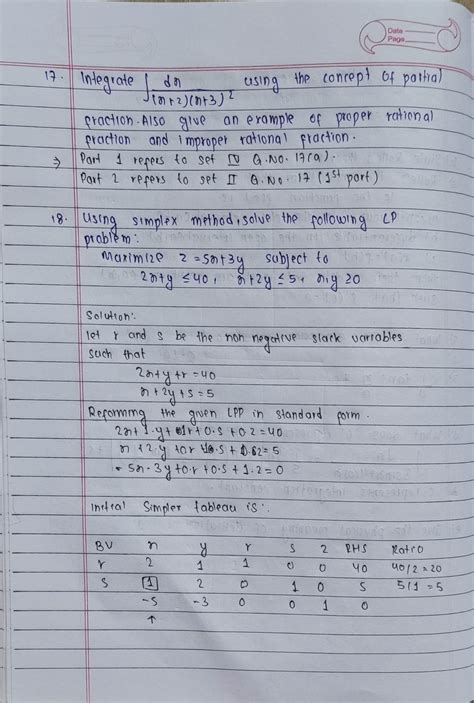 Date
Page
17. Integrate ∫ dx/(x+2)(x+3)² using the concept of partial
fraction. Also give an example of proper rational
fraction and improper rational fraction.
⇒ Part 1 refers to set IV Q.No. 17(a).
Part 2 refers to set II Q.No. 17 (1st part)
18. Using simplex method, solve the following LP
problem:
Maximize z = 5x+3y subject to
2x+y ≤ 40, x+2y ≤ 5, x,y ≥ 0
Solution:
let r and s be the non negative slack variables
such that
2x+y+r = 40
x+2y+s = 5
Reforming the given LPP in standard form.
2x+1.y+1r+0.s+0.z=40
x+2.y+0r+1.s+0.z=5
-5x-3y+0.r+0.s+1.z=0
Initial Simplex tableau is:
BV x y r s z RHS Ratio
r 2 1 1 0 0 40 40/2=20
s 1 2 0 1 0 5 5/1=5
-5 -3 0 0 1 0
↑